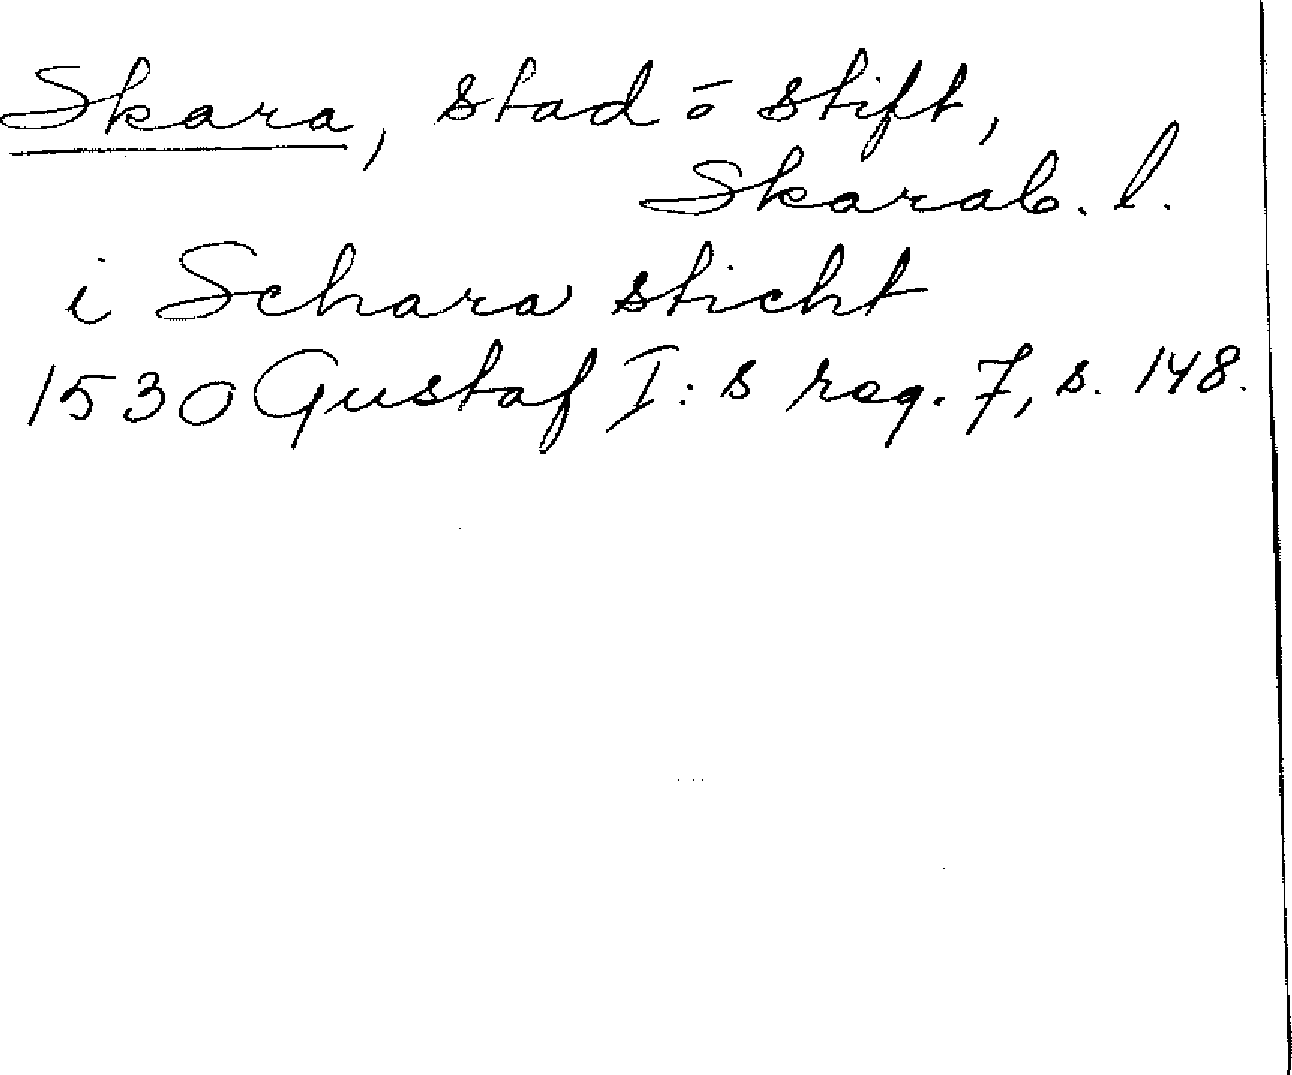 Skara, stad o stift,
Skarab. l.
i Schara sticht
1530 Gustaf I:s reg. 7, s. 148.